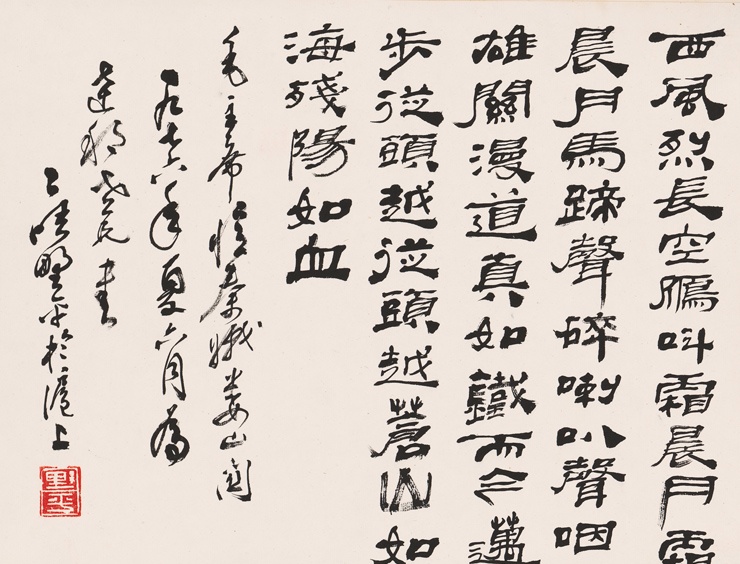 西風烈長空鴈叫霜晨月霜
晨月馬蹄聲碎喇叭聲咽
雄關漫道真如鐵而今邁
步從頭越從頭越蒼山如
海殘陽如血
毛主席憶秦娥婁山関
一九七六年夏六月為
達老兄書
野平於滬上